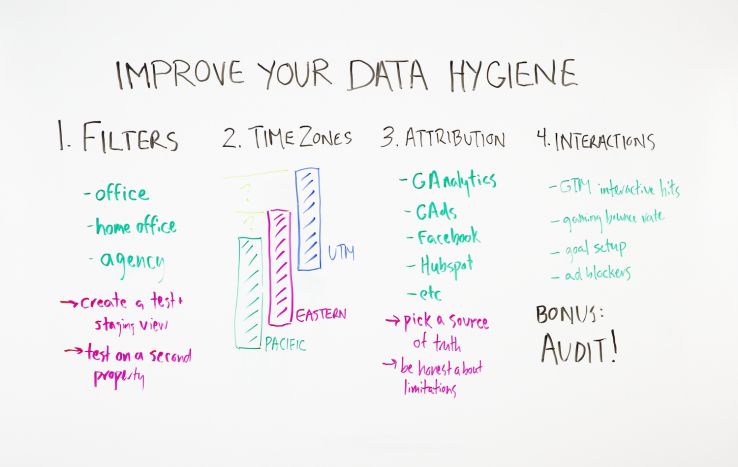 IMPROVE YOUR DATA HYGIENE
1. FILTERS
- office
- home office
- agency
→ create a test +
staging view
→ test on a second
property
2. TIME ZONES
UTM
EASTERN
PACIFIC
3. ATTRIBUTION
- GAnalytics
- GAds
- Facebook
- Hubspot
- etc
→ pick a source
of truth
→ be honest about
limitations
4. INTERACTIONS
- GTM interactive hits
- gaming bounce rate
- goal setup
- ad blockers
BONUS:
AUDIT!